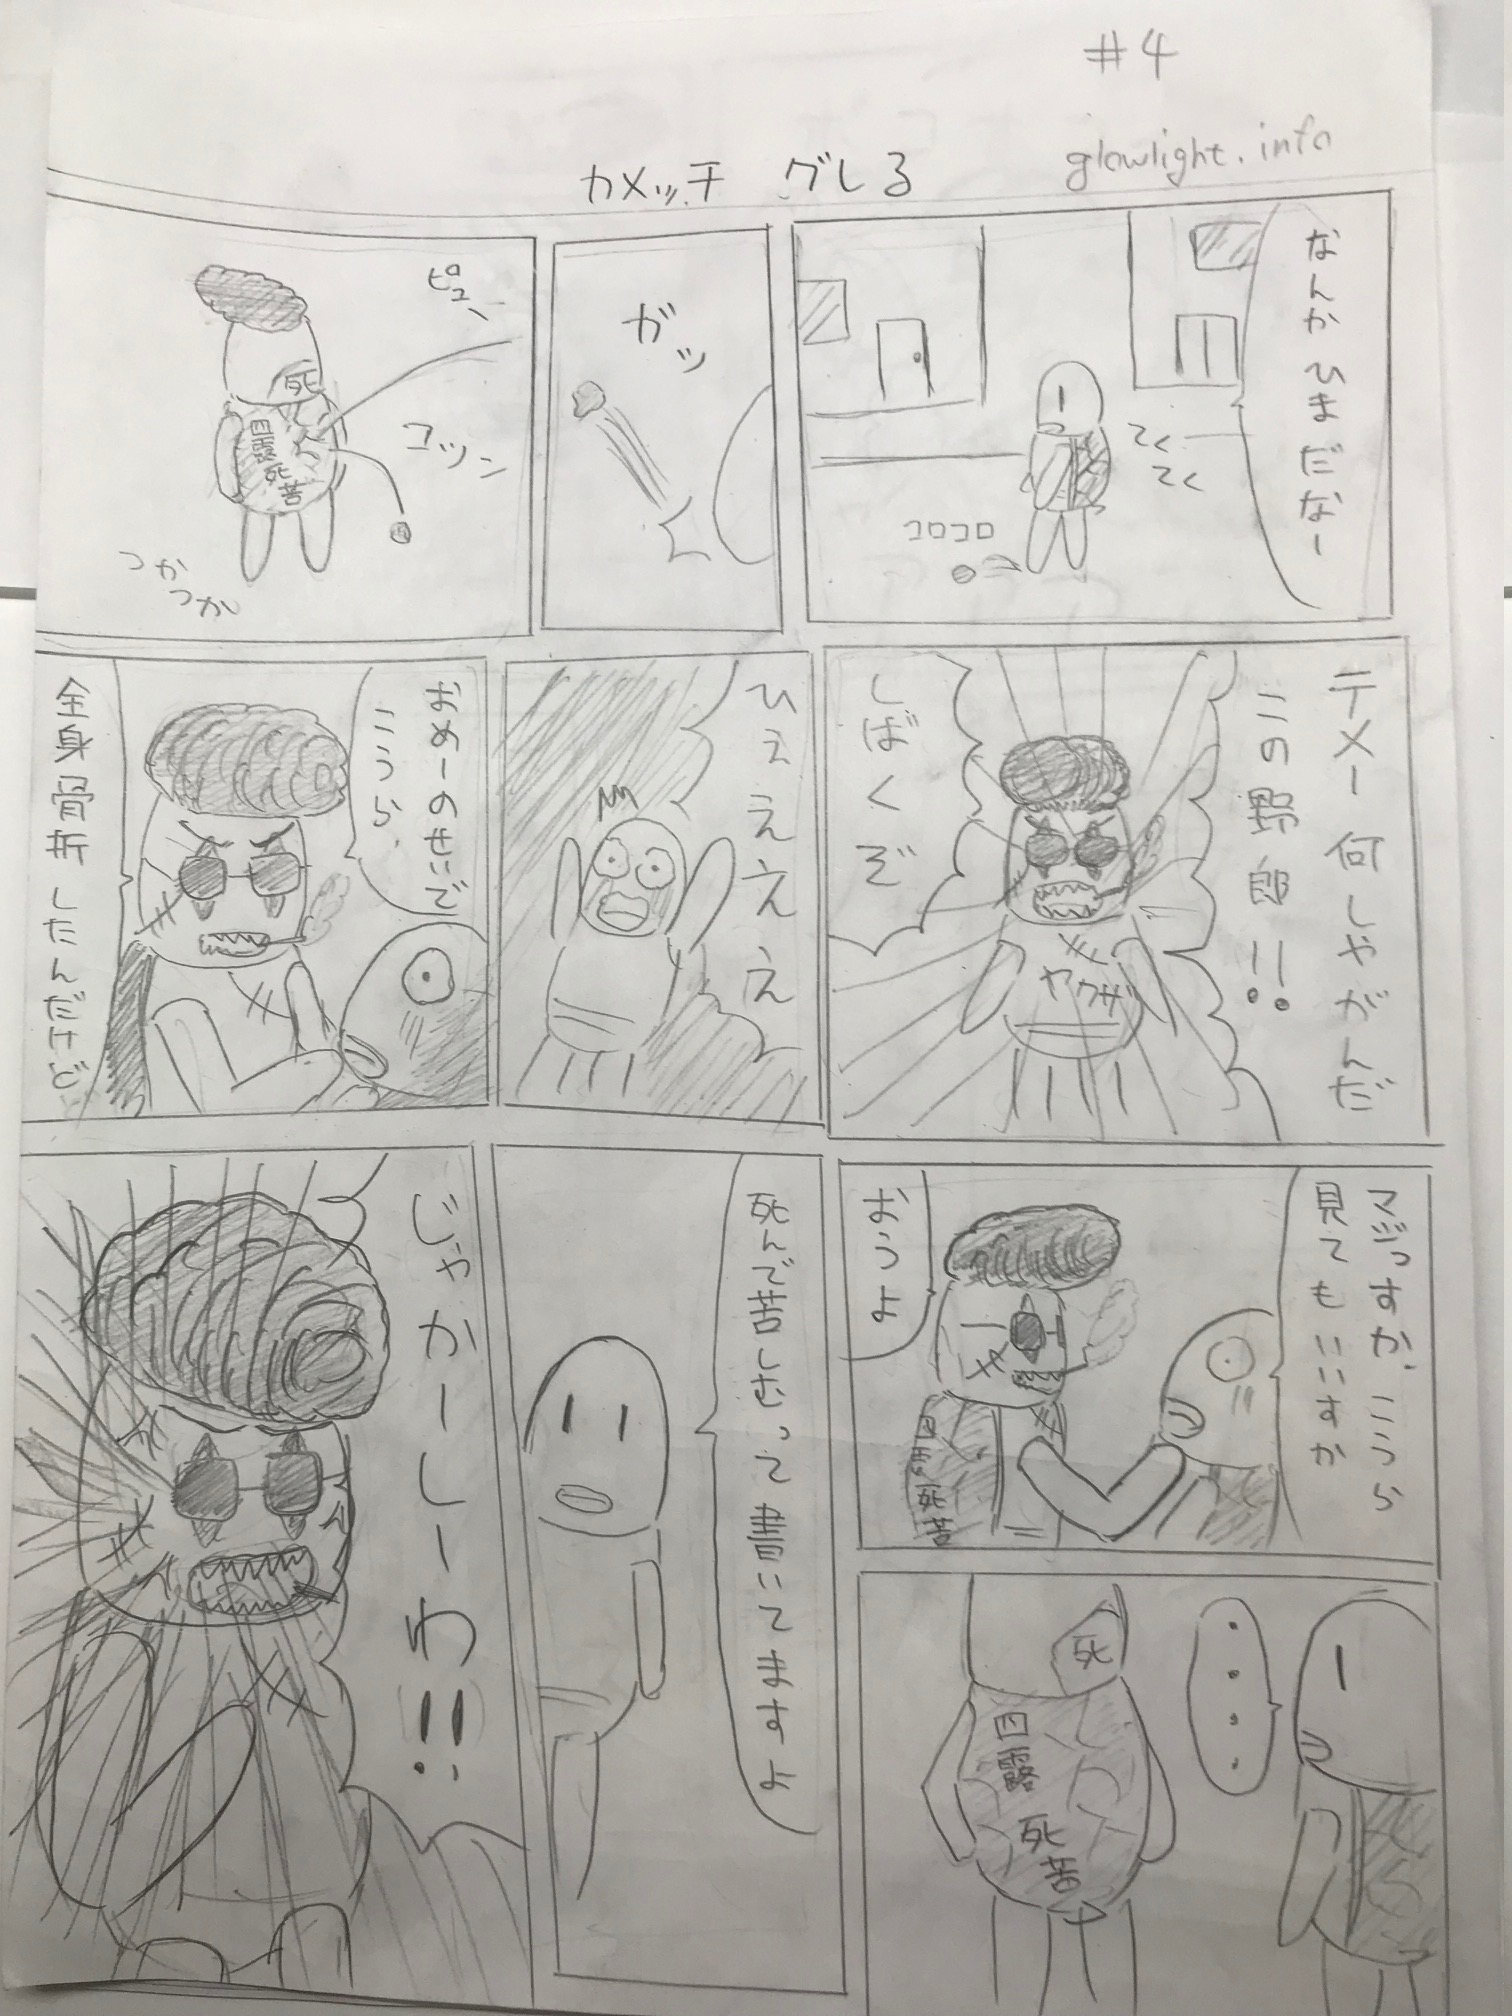 #4
glowlight.info
カメッチ グレる
なんかひまだなー
てく
てく
コロコロ
ガッ
ピュー
コツン
死
四露死苦
つか
つか
テメー何しやがんだ
この野郎!!
しばくぞ
ヤクザ
ひぇえええ
おめーのせいで
こうら
全身骨折したんだけど
マジっすか、こうら
見てもいいすか
おうよ
四露死苦
・・・・
死
四露死苦
死んで苦しむって書いてますよ
じゃかーしーわ!!